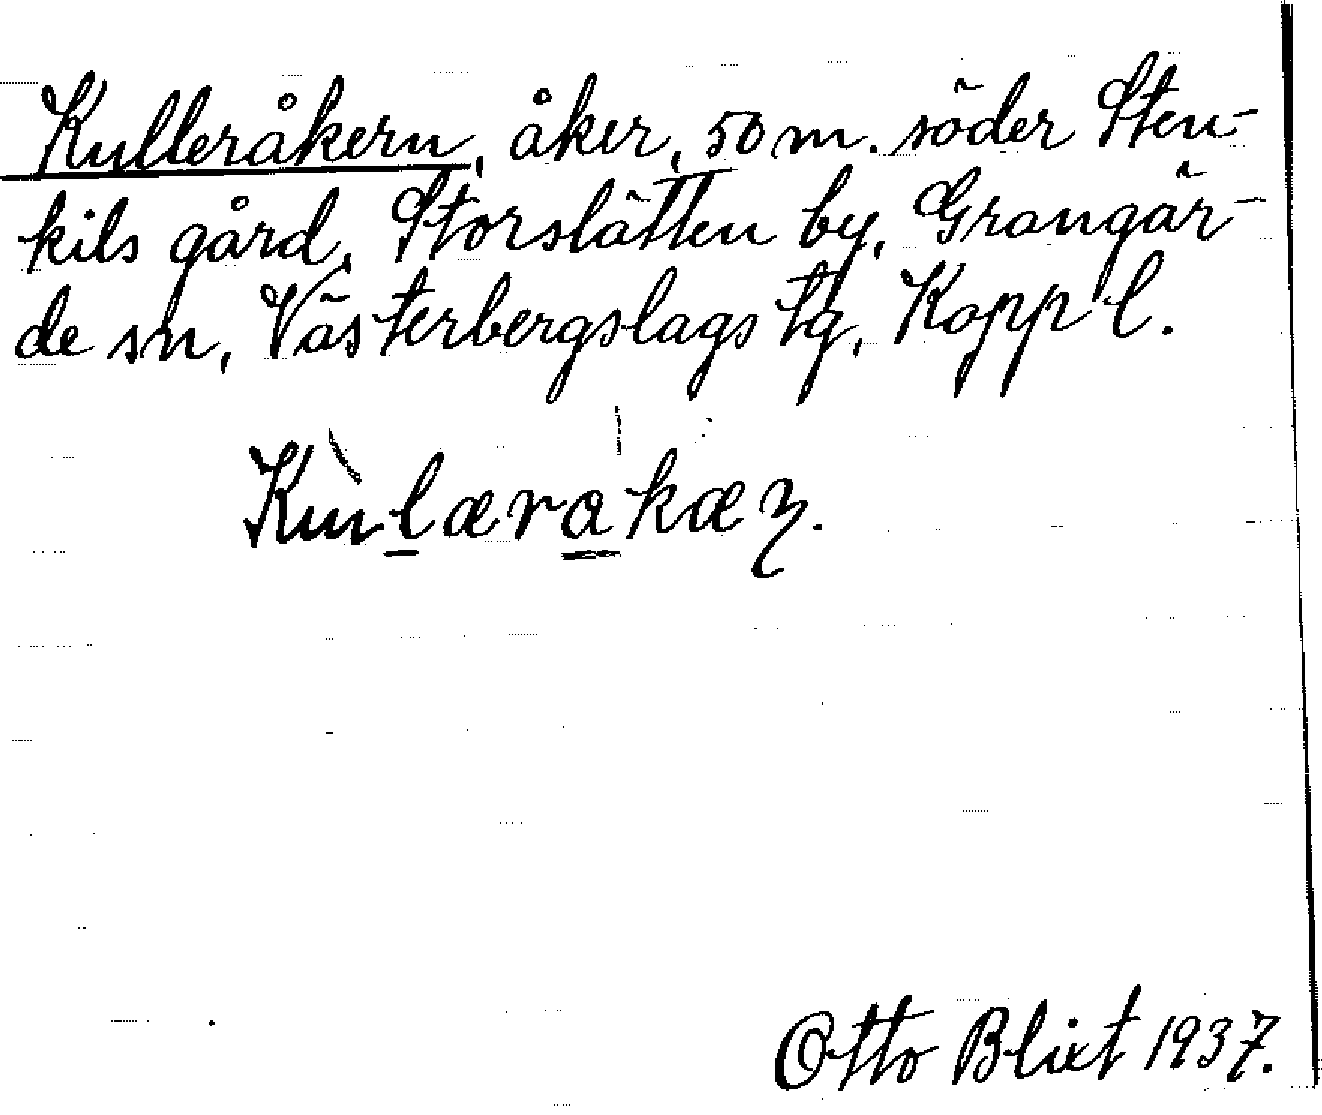 Kulleråkern, åker, 50 m. söder Sten-
kils gård, Storslätten by, Grangär-
de sn, Västerbergslags tg, Kopp l.
Kùlærakæŋ.
Otto Blixt 1937.